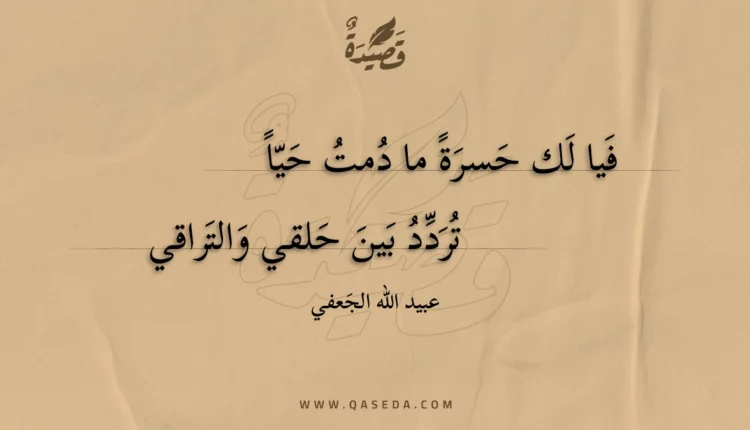 قَصِيْدَةٌ
فَيا لَك حَسرَةً ما دُمتُ حَيّاً
تُرَدِّدُ بَينَ حَلقي وَالتَراقي
عبيد الله الجَعفي
WWW.QASEDA.COM